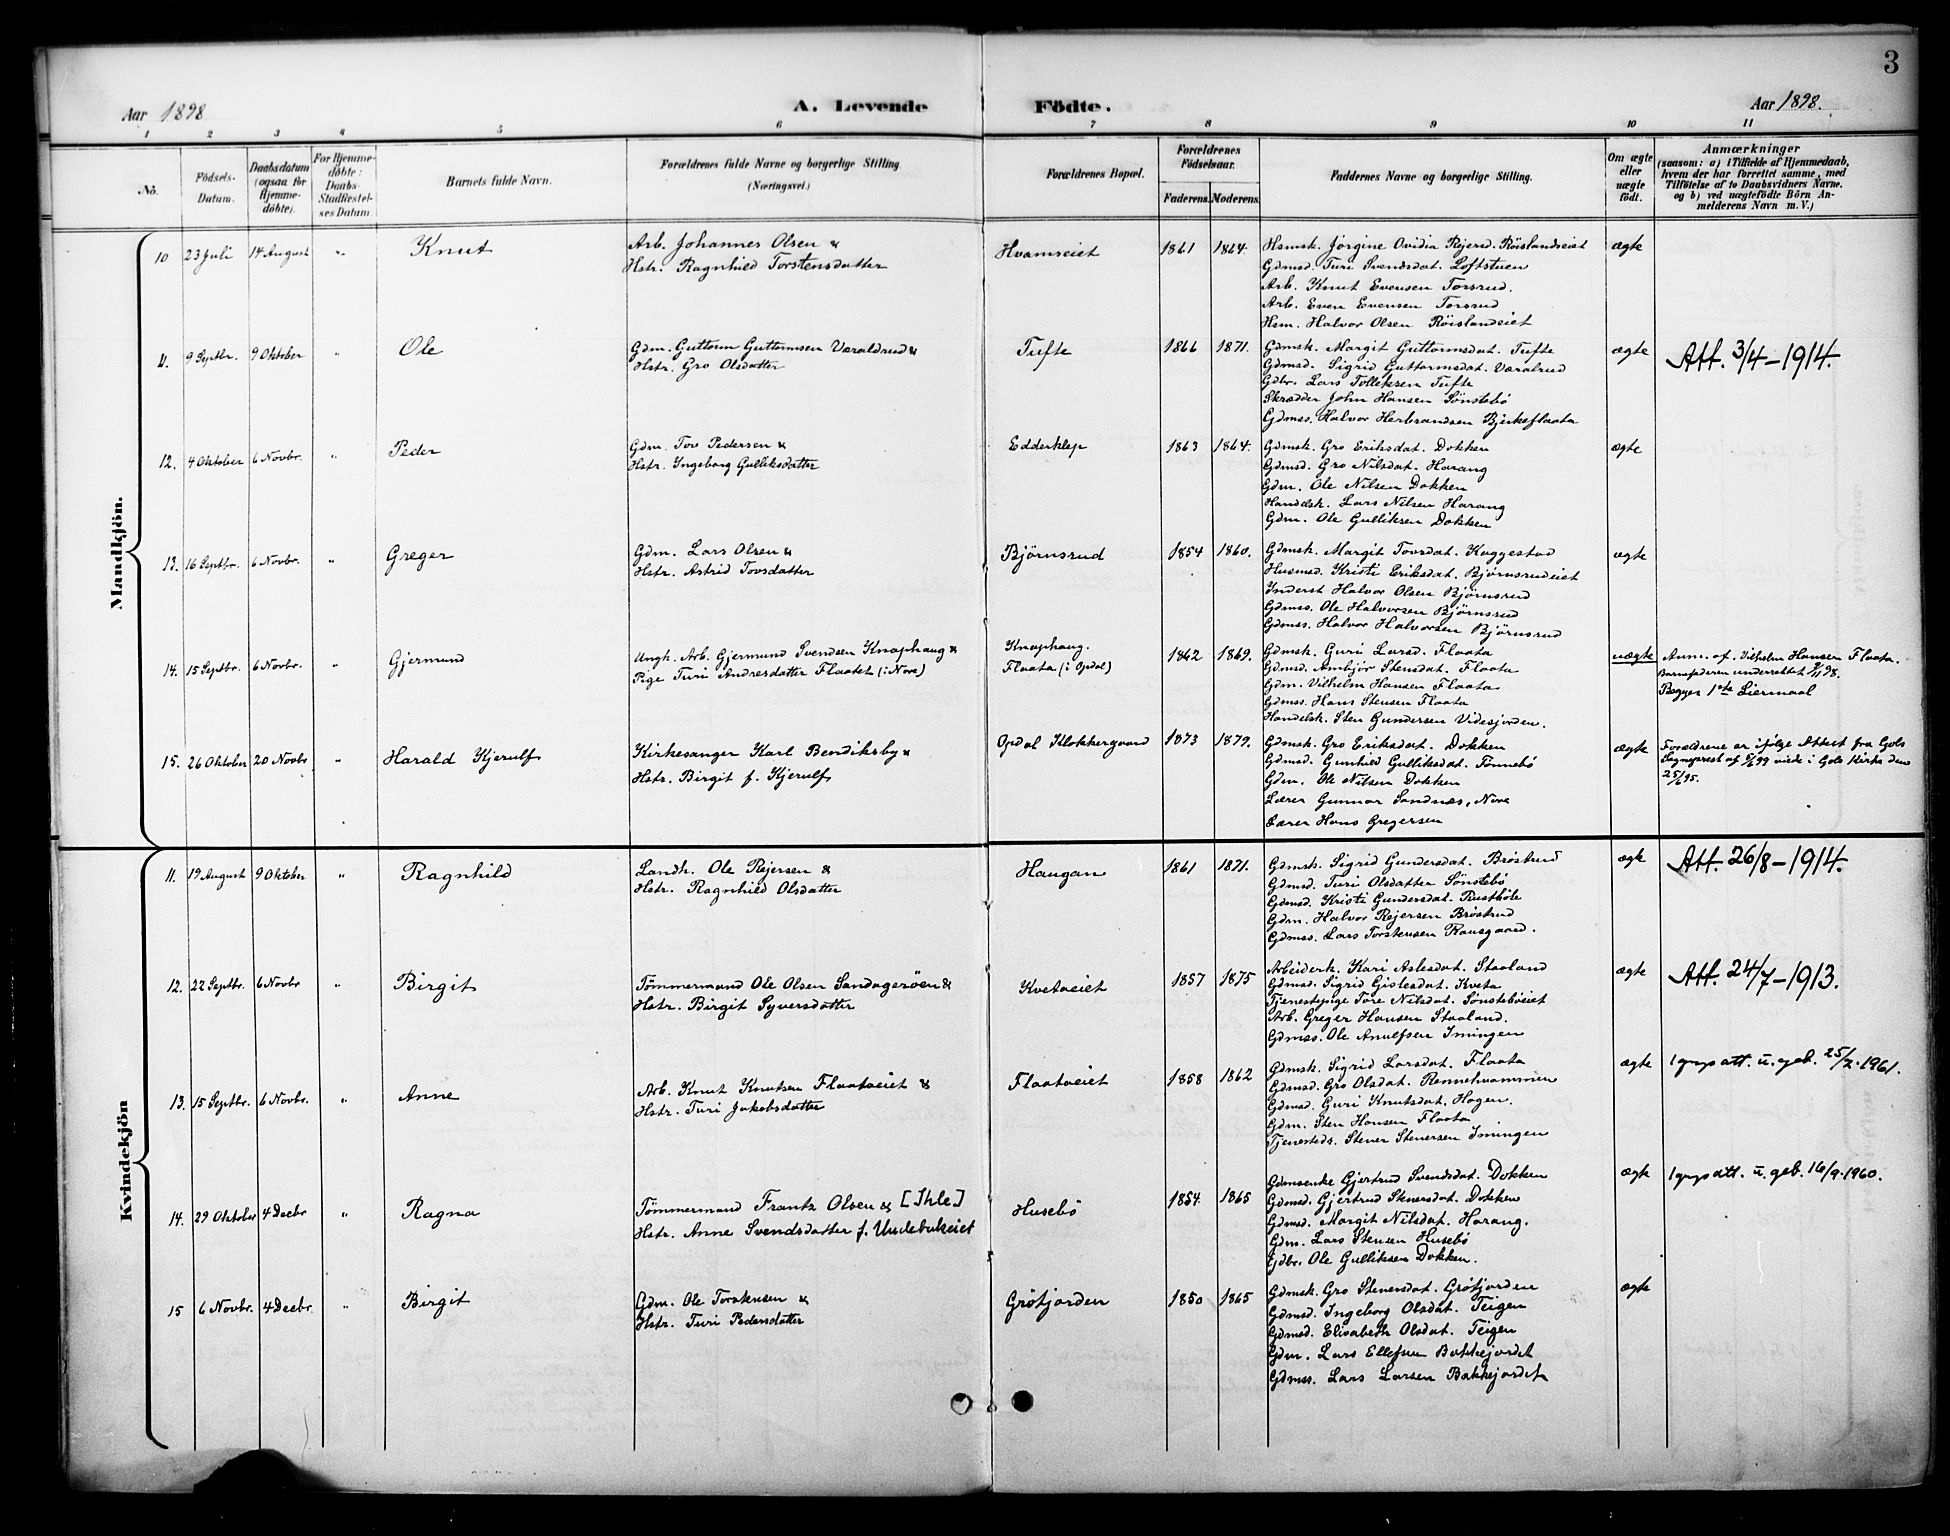 3
Aar 1898
A. Levende Födte.
Aar 1898.
1 2 3 4 5 6 7 8 9 10 11
No.
Födsels-
Datum.
Daabsdatum
(ogsaa for
Hjemme-
döbte).
For Hjemme-
döbte:
Daabs-
Stadfæstel-
ses Datum.
Barnets fulde Navn.
Forældrenes fulde Navne og borgerlige Stilling.
(Næringsvei.)
Forældrenes Bopæl.
Forældrenes
Födselsaar.
Faderens. Moderens.
Faddernes Navne og borgerlige Stilling.
Om ægte
eller
uægte
födt.
Anmærkninger
(saasom: a) i Tilfælde af Hjemmedaab,
hvem der har forrettet samme, med
Tilföielse af to Daabsvidners Navne,
og b) ved uægtefödte Börn An-
melderens Navn m. V.)
Mandkjön.
10 23 Juli 14 August " Knut
Arb. Johannes Olsen &
Hstr. Ragnhild Torstensdatter
Hvamseiet 1861 1864.
Hsmsk. Jörgine Ovidia Rejersd. Röislandseiet
Gdmsd. Turi Svendsdat. Loftstuen
Arb. Knut Evensen Torsrud.
Arb. Even Evensen Torsrud
Hsm. Halvor Olsen Röislandeiet
ægte
11. 9 Septbr. 9 Oktober " Ole
Gdm. Guttorm Guttormsen Væraldrud &
Hstr. Gro Olsdatter
Tufte 1866 1871.
Gdmsk. Margit Guttormsdat. Tufte
Gdmsd. Sigrid Guttormsdat. Væralrud
Gdbr. Lars Tolleksen Tufte
Skrædder John Hansen Sönstebö
Gdmss. Halvor Herbrandsen Bjerkeflaata
ægte
Att. 3/4 - 1914.
12. 4 Oktober 6 Novbr. " Peder
Gdm. Tov Pedersen &
Hstr. Ingeborg Gulliksdatter
Edderklep 1863 1864.
Gdmsk. Gro Eriksdat. Dokken
Gdmsd. Gro Nilsdat. Harang
Gdm. Ole Nilsen Dokken
Handelsk. Lars Nilsen Harang
Gdm. Ole Gulliksen Dokken
ægte
13. 16 Septbr. 6 Novbr. " Greger
Gdm. Lars Olsen &
Hstr. Astrid Tovsdatter
Björnsrud 1854 1860.
Gdmsk. Margit Tovsdat. Kaggestad
Husmsd. Kristi Eriksdat. Björnsrudeiet
Inderst Halvor Olsen Björnsrud
Gdmss. Ole Halvorsen Björnsrud
Gdmss. Halvor Halvorsen Björnsrud
ægte
14. 15 Septbr. 6 Novbr. " Gjermund
Ungk. Arb. Gjermund Svendsen Knaphaug &
Pige Turi Andresdatter Flaatet (i Nore)
Knaphaug.
Flaata (i Opdal) 1862 1869.
Gdmsk. Guri Larsd. Flaata
Gdmsd. Ambjör Stensdat. Flaata
Gdm. Vilhelm Hansen Flaata
Gdmss. Hans Stensen Flaata
Handelsk. Sten Gundersen Videsjorden.
uægte
Anm. af. Vilhelm Hansen Flaata.
Barnefaderen underrettet 8/11 98.
Begges 1ste Leiermaal
15. 26 Oktober 20 Novbr " Harald Kjerulf
Kirkesanger Karl Bendiksby &
Hstr. Birgit f. Kjerulf
Opdal Klokkergaard 1873 1879.
Gdmsk. Gro Eriksdat. Dokken
Gdmsd. Gunhild Gulliksdat. Tönnebö
Gdm. Ole Nilsen Dokken
Lærer Gunnar Sandnæs, Nore
Lærer Hans Gregersen
ægte
Forældrene er ifölge Attest fra Gols
Sognepræst af 6/6 99 viede i Gols Kirke den
25/6 95.
Kvindekjön
11. 19 August 9 Oktober " Ragnhild
Landh. Ole Rejersen &
Hstr. Ragnhild Olsdatter
Haugan 1861 1871.
Gdmsk. Sigrid Gundersdat. Bröstrud
Gdmsd. Turi Olsdatter Sönstebö
Gdmsd. Kristi Gundersdat. Rustböle
Gdm. Halvor Rejersen Bröstrud
Gdmss. Lars Torstensen Raasgaard.
ægte
Att. 26/8 - 1914.
12. 22 Septbr. 6 Novbr " Birgit
Tömmermand Ole Olsen Sandageröen &
Hstr. Birgit Syversdatter
Kvetaeiet 1857 1875
Arbeiderk. Kari Aslesdat. Staaland
Gdmsd. Sigrid Gislesdat. Kveta
Tjenestepige Tore Nilsdat. Sönsteböeiet
Arb. Greger Hansen Staaland.
Gdmss. Ole Anulfsen Imingen
ægte
Att. 24/7 - 1913.
13. 15 Septbr. 6 Novbr. " Anne
Arb. Knut Knutsen Flaataeiet &
Hstr. Turi Jakobsdatter
Flaataeiet 1858 1862
Gdmsk. Sigrid Larsdat. Flaata
Gdmsd. Gro Olsdat. Rennehvammen
Gdmsd. Guri Knutsdat. Hagen.
Gdm. Sten Hansen Flaata
Tjenesteds. Stener Stenersen Imingen
ægte
1 grp att. u. geb. 25/2. 1961.
14. 29 Oktober 4 Decbr " Ragna
Tömmermand Frantz Olsen & [Ihle]
Hstr. Anne Svendsdatter f. Undebakeiet
Husebö 1854 1865
Gdmsenke Gjertrud Svendsdat. Dokken
Gdmsd. Gjertrud Stenersdat. Dokken
Gdmsd. Margit Nilsdat. Harang.
Gdm. Lars Stensen Husebö
Gdbr. Ole Gulliksen Dokken.
ægte
1 grp att. u. geb. 16/9. 1960.
15 6 Novbr. 4 Decbr. " Birgit
Gdm. Ole Torstensen &
Hstr. Turi Pedersdatter
Grötjorden 1850 1865
Gdmsk. Gro Stenersdat. Grötjorden
Gdmsd. Ingeborg Olsdat. Teigen
Gdmsd. Elisabeth Olsdat. Teigen
Gdm. Lars Ellefsen Bakkejordet
Gdmss. Lars Larsen Bakkejordet
ægte